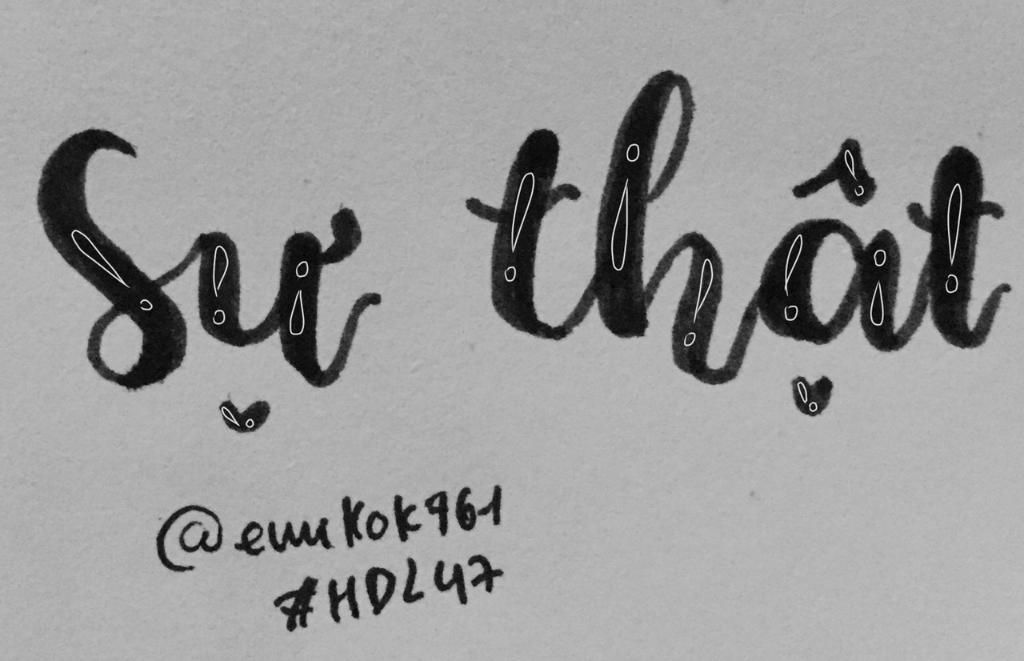 Sự thật
@emikok961
#HDL47